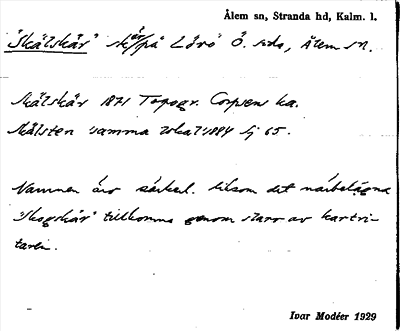 Ålem sn, Stranda hd, Kalm. l.
"Skälskär" skär på Lövö Ö. sida, Ålem sn.
Skälskär 1871 Topogr. Corpsens ka.
Skälsten samma lokal 1884 Sj 65.
Namnen äro särkert. liksom det närbelägna
"Skogskär" tillkomna genom skarv av kartri-
taren.
Ivar Modéer 1929